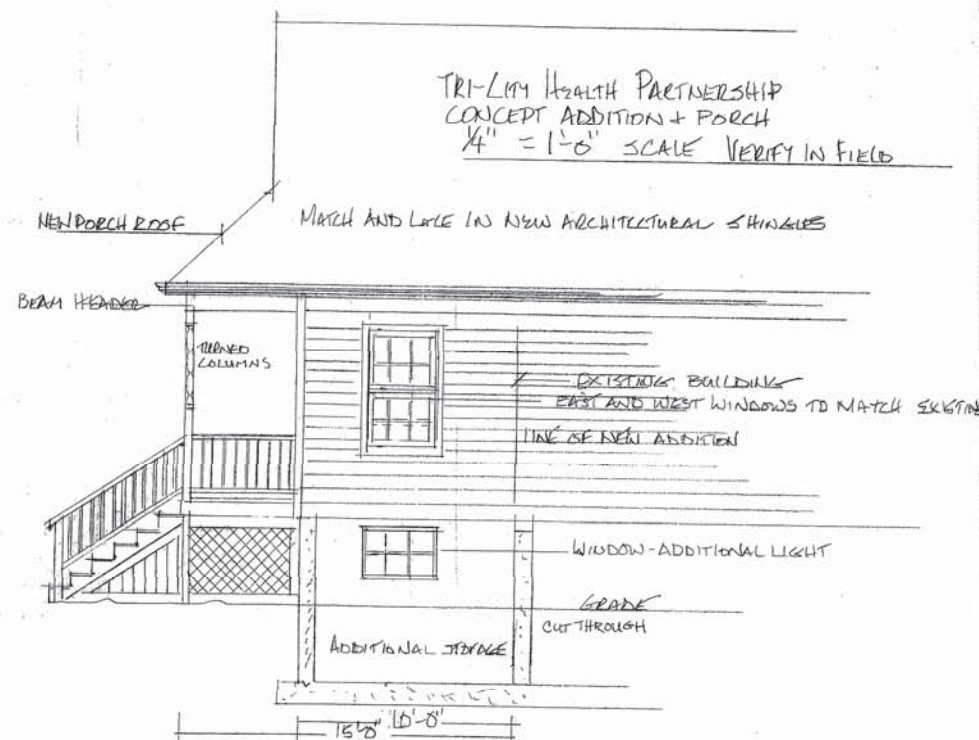 TRI-CITY HEALTH PARTNERSHIP
CONCEPT ADDITION + PORCH
1/4" = 1'-0" SCALE VERIFY IN FIELD
NEW PORCH ROOF
MATCH AND LACE IN NEW ARCHITECTURAL SHINGLES
BEAM HEADER
TURNED
COLUMNS
EXISTING BUILDING
EAST AND WEST WINDOWS TO MATCH EXISTING
LINE OF NEW ADDITION
WINDOW-ADDITIONAL LIGHT
GRADE
CUT THROUGH
ADDITIONAL STORAGE
10'-0"
15'0"